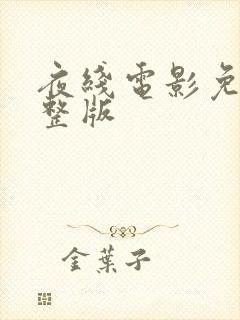 夜线電影免
整版
金葉子